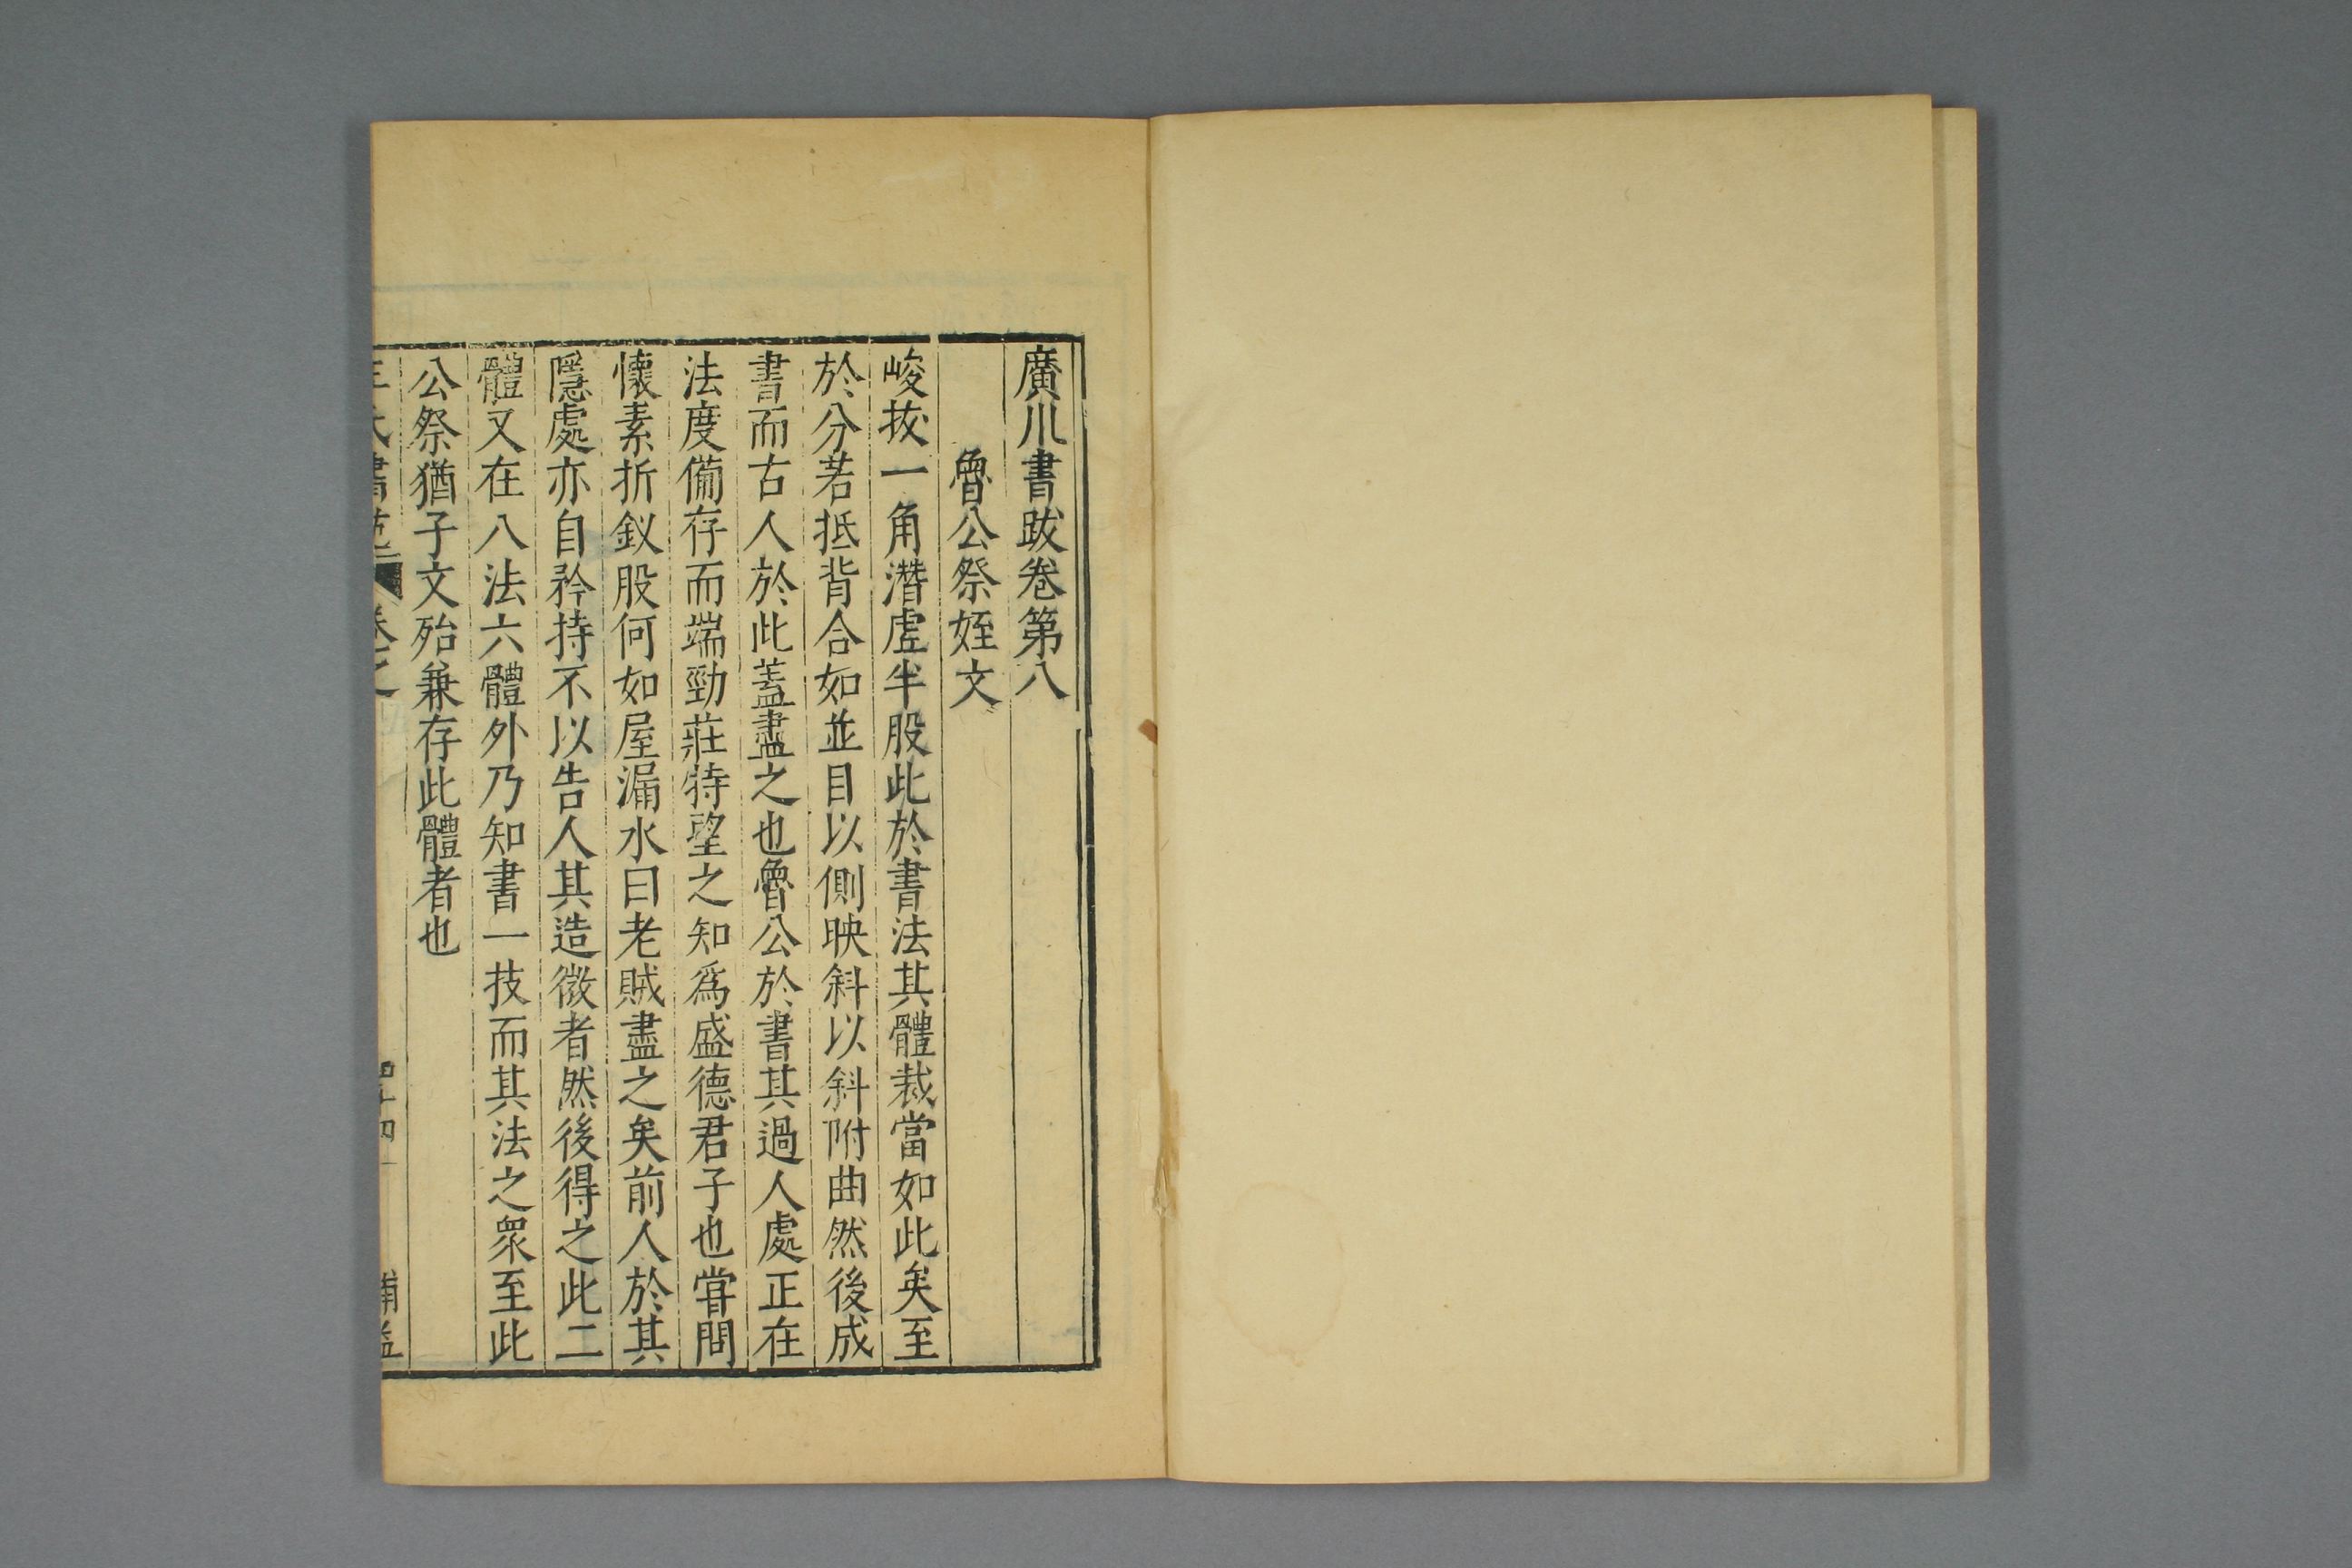 廣川書跋卷第八
魯公祭姪文
峻拔一角潛虛半股此於書法其體裁當如此矣至
於分若抵背合如並目以側映斜以斜附曲然後成
書而古人於此蓋盡之也魯公於書其過人處正在
法度備存而端勁莊特望之知爲盛德君子也甞問
懷素折釵股何如屋漏水曰老賊盡之矣前人於其
隱處亦自矜持不以告人其造微者然後得之此二
體又在八法六體外乃知書一技而其法之衆至此
公祭猶子文殆兼存此體者也
王氏書苑 卷之
四十四